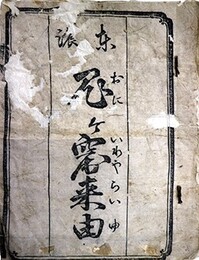 鬼ヶ窟来由
おに いわやらいゆ